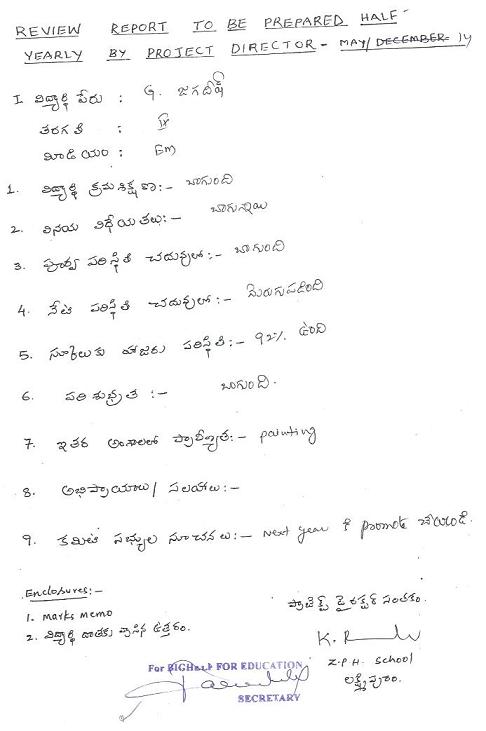 REVIEW REPORT TO BE PREPARED HALF-
YEARLY BY PROJECT DIRECTOR - MAY/DECEMBER- 14
I విద్యార్థి పేరు : G. జగదీష్
తరగతి : IX
మీడియం : Em
1. విద్యార్థి క్రమశిక్షణ :- బాగుంది
2. వినయ విధేయతలు :- బాగున్నాయి
3. పూర్వ పరిస్థితి చదువులో :- బాగుంది
4. నేటి పరిస్థితి చదువులో :- మెరుగుపడింది
5. స్కూలుకు హాజరు పరిస్థితి :- 92% ఉంది
6. పరిశుభ్రత :- బాగుంది.
7. ఇతర అంశాలలో ప్రావీణ్యత :- painting
8. అభిప్రాయాలు/ సలహాలు :-
9. కమిటి సభ్యుల సూచనలు :- Next year కి promote చేయండి.
Enclosures :-
1. marks memo
2. విద్యార్థి దాతకు వ్రాసిన ఉత్తరం.
ప్రాజెక్ట్ డైరక్టర్ సంతకం.
Z.P.H. School
లక్ష్మీపురం.
For BIGHELP FOR EDUCATION
SECRETARY